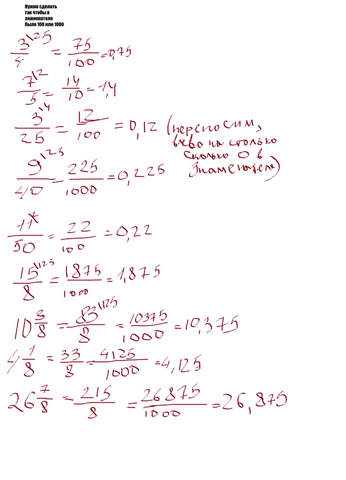 Нужно сделать
так чтобы в
знаменателе
было 100 или 1000
3\25/4 = 75/100 = 0,75
7\2/5 = 14/10 = 1,4
3\4/25 = 12/100 = 0,12 (переносим,
влево на столько
сколько 0 в
знаменателе)
9\25/40 = 225/1000 = 0,225
11\/50 = 22/100 = 0,22
15\125/8 = 1875/1000 = 1,875
10 3/8 = 83\125/8 = 10375/1000 = 10,375
4 1/8 = 33/8 = 4125/1000 = 4,125
26 7/8 = 215/8 = 26875/1000 = 26,875